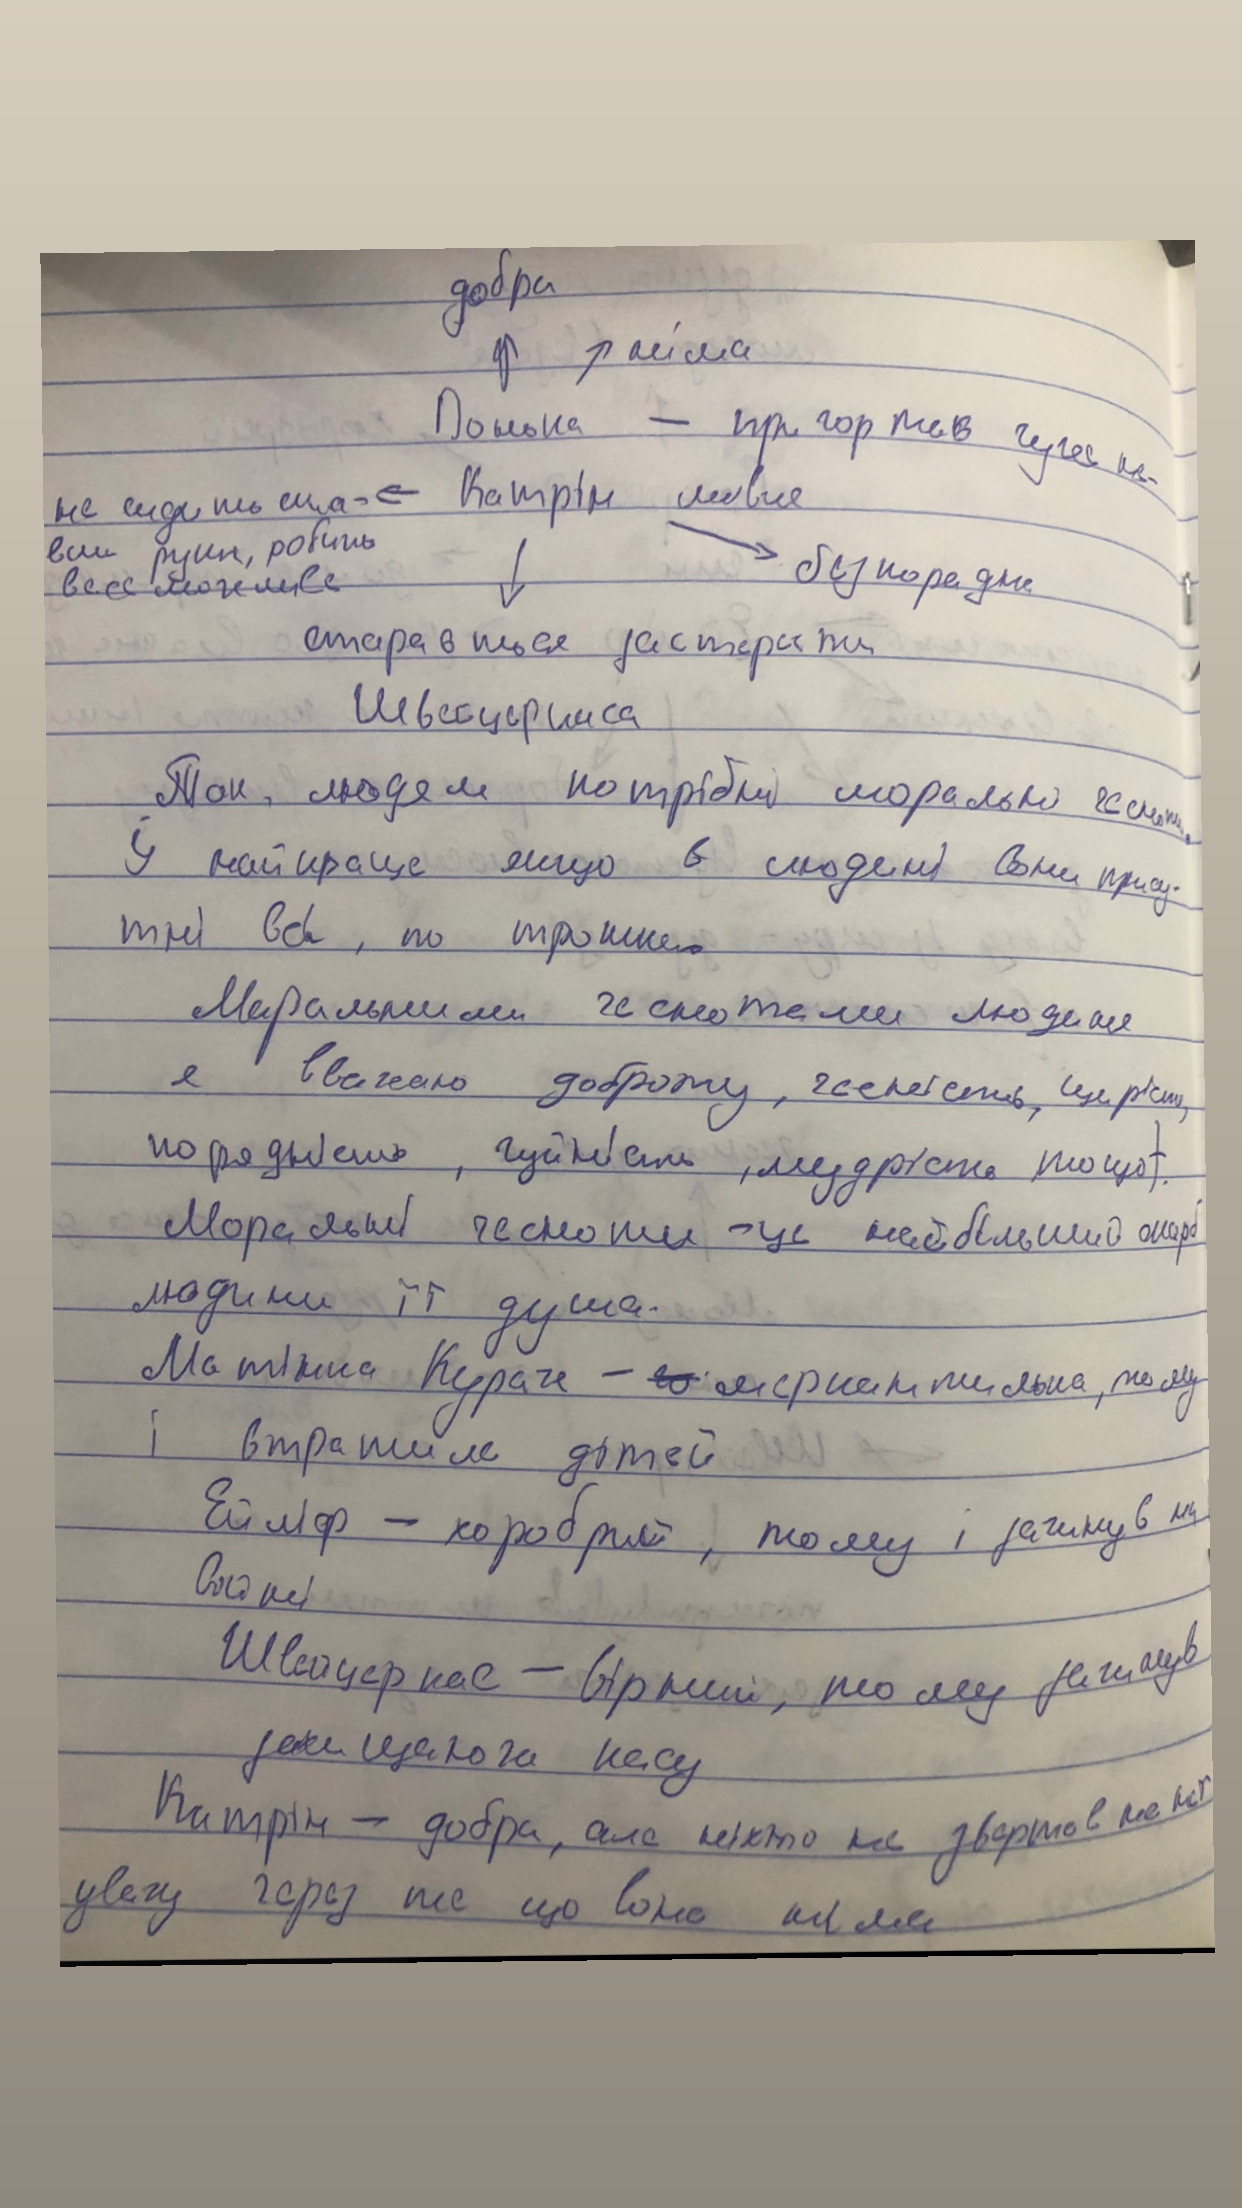 добра
німа
Донька — пригортав чуже не-
Катрін мовля
не сидить скла-
вши руки, робить
все можливе
безпорадна
старається застерегти
Швейцеркаса
Так, людям потрібні моральні чесноти.
Й найкраще якщо в людині вони прису-
тні всі, по трошки.
Моральними чеснотами людини
я вважаю доброту, чесність, щирість,
порядність, чуйність, мудрість тощо.
Моральні чесноти – це найбільший скарб
людини її душа.
Матінка Кураж – меркантильна, тому
і втратила дітей
Ейліф – хоробрий, тому і загинув на
війні
Швейцеркас – вірний, тому загинув
захищаючи касу
Катрін – добра, але ніхто не звертав на неї
увагу через те що вона німа